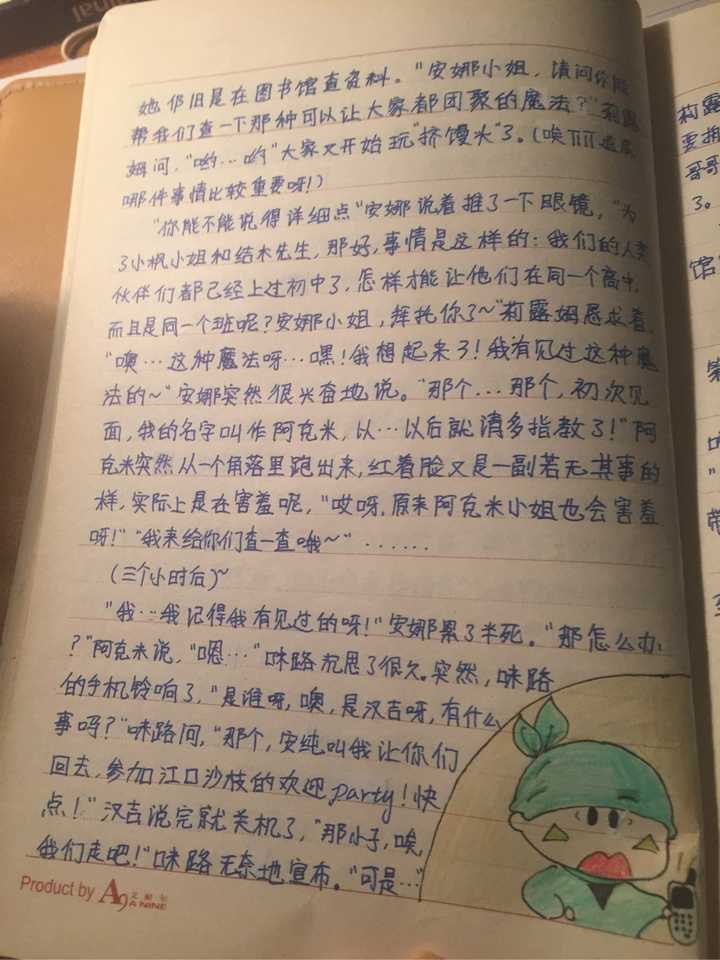 她仍旧是在图书馆查资料。“安娜小姐，请问你能
帮我们查一下那种可以让大家都团聚的魔法？”莉露
姆问，“哟…哟”大家又开始玩“挤馒头”了。（唉TTT这
哪件事情比较重要呀！）
“你能不能说得详细点”安娜说着推了一下眼镜，“为
了小枫小姐和结木先生，那好，事情是这样的：我们的人类
伙伴们都已经上过初中了，怎样才能让他们在同一个高中，
而且是同一个班呢？安娜小姐，拜托你了~”莉露姆恳求着，
“噢…这种魔法呀…嘿！我想起来了！我有见过这种魔
法的~”安娜突然很兴奋地说。“那个…那个，初次见
面，我的名字叫作阿克米，以…以后就请多指教了！”阿
克米突然从一个角落里跑出来，红着脸又是一副若无其事的
样，实际上是在害羞呢，“哎呀，原来阿克米小姐也会害羞
呀！”“我来给你们查一查哦~”……
（三个小时后）~
“我…我记得我有见过的呀！”安娜累了半死。“那怎么办
？”阿克米说，“嗯…”咪路沉思了很久。突然，咪路
的手机铃响了，“是谁呀，噢，是汉吉呀，有什么
事吗？”咪路问，“那个，安纯叫我让你们
回去，参加江口沙枝的欢迎party！快
点！”汉吉说完就关机了，“那小子，唉，
我们走吧！”咪路无奈地宣布。“可是…”
Product by A9 艾能尔
A NINE
莉露
要
哥哥
了。
馆